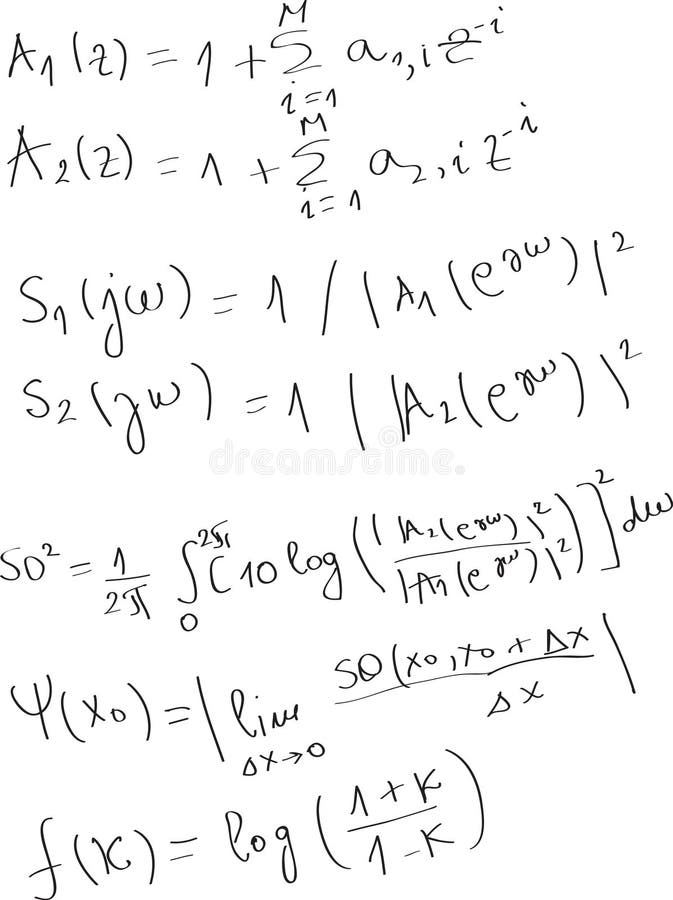 A₁(z) = 1 + Σ_{i=1}^{M} a_{1,i} z^{-i}
A₂(z) = 1 + Σ_{i=1}^{M} a_{2,i} z^{-i}
S₁(jω) = 1 / |A₁(e^{jω})|²
S₂(jω) = 1 / |A₂(e^{jω})|²
dreamstime
SD² = \frac{1}{2π} ∫_{0}^{2π} [10 log(\frac{|A₂(e^{jω})|²}{|A₁(e^{jω})|²})]² dω
Ψ(x₀) = |lim_{Δx→0} \frac{SD(x₀, x₀ + Δx}{Δx}|
f(K) = log(\frac{1+K}{1-K})